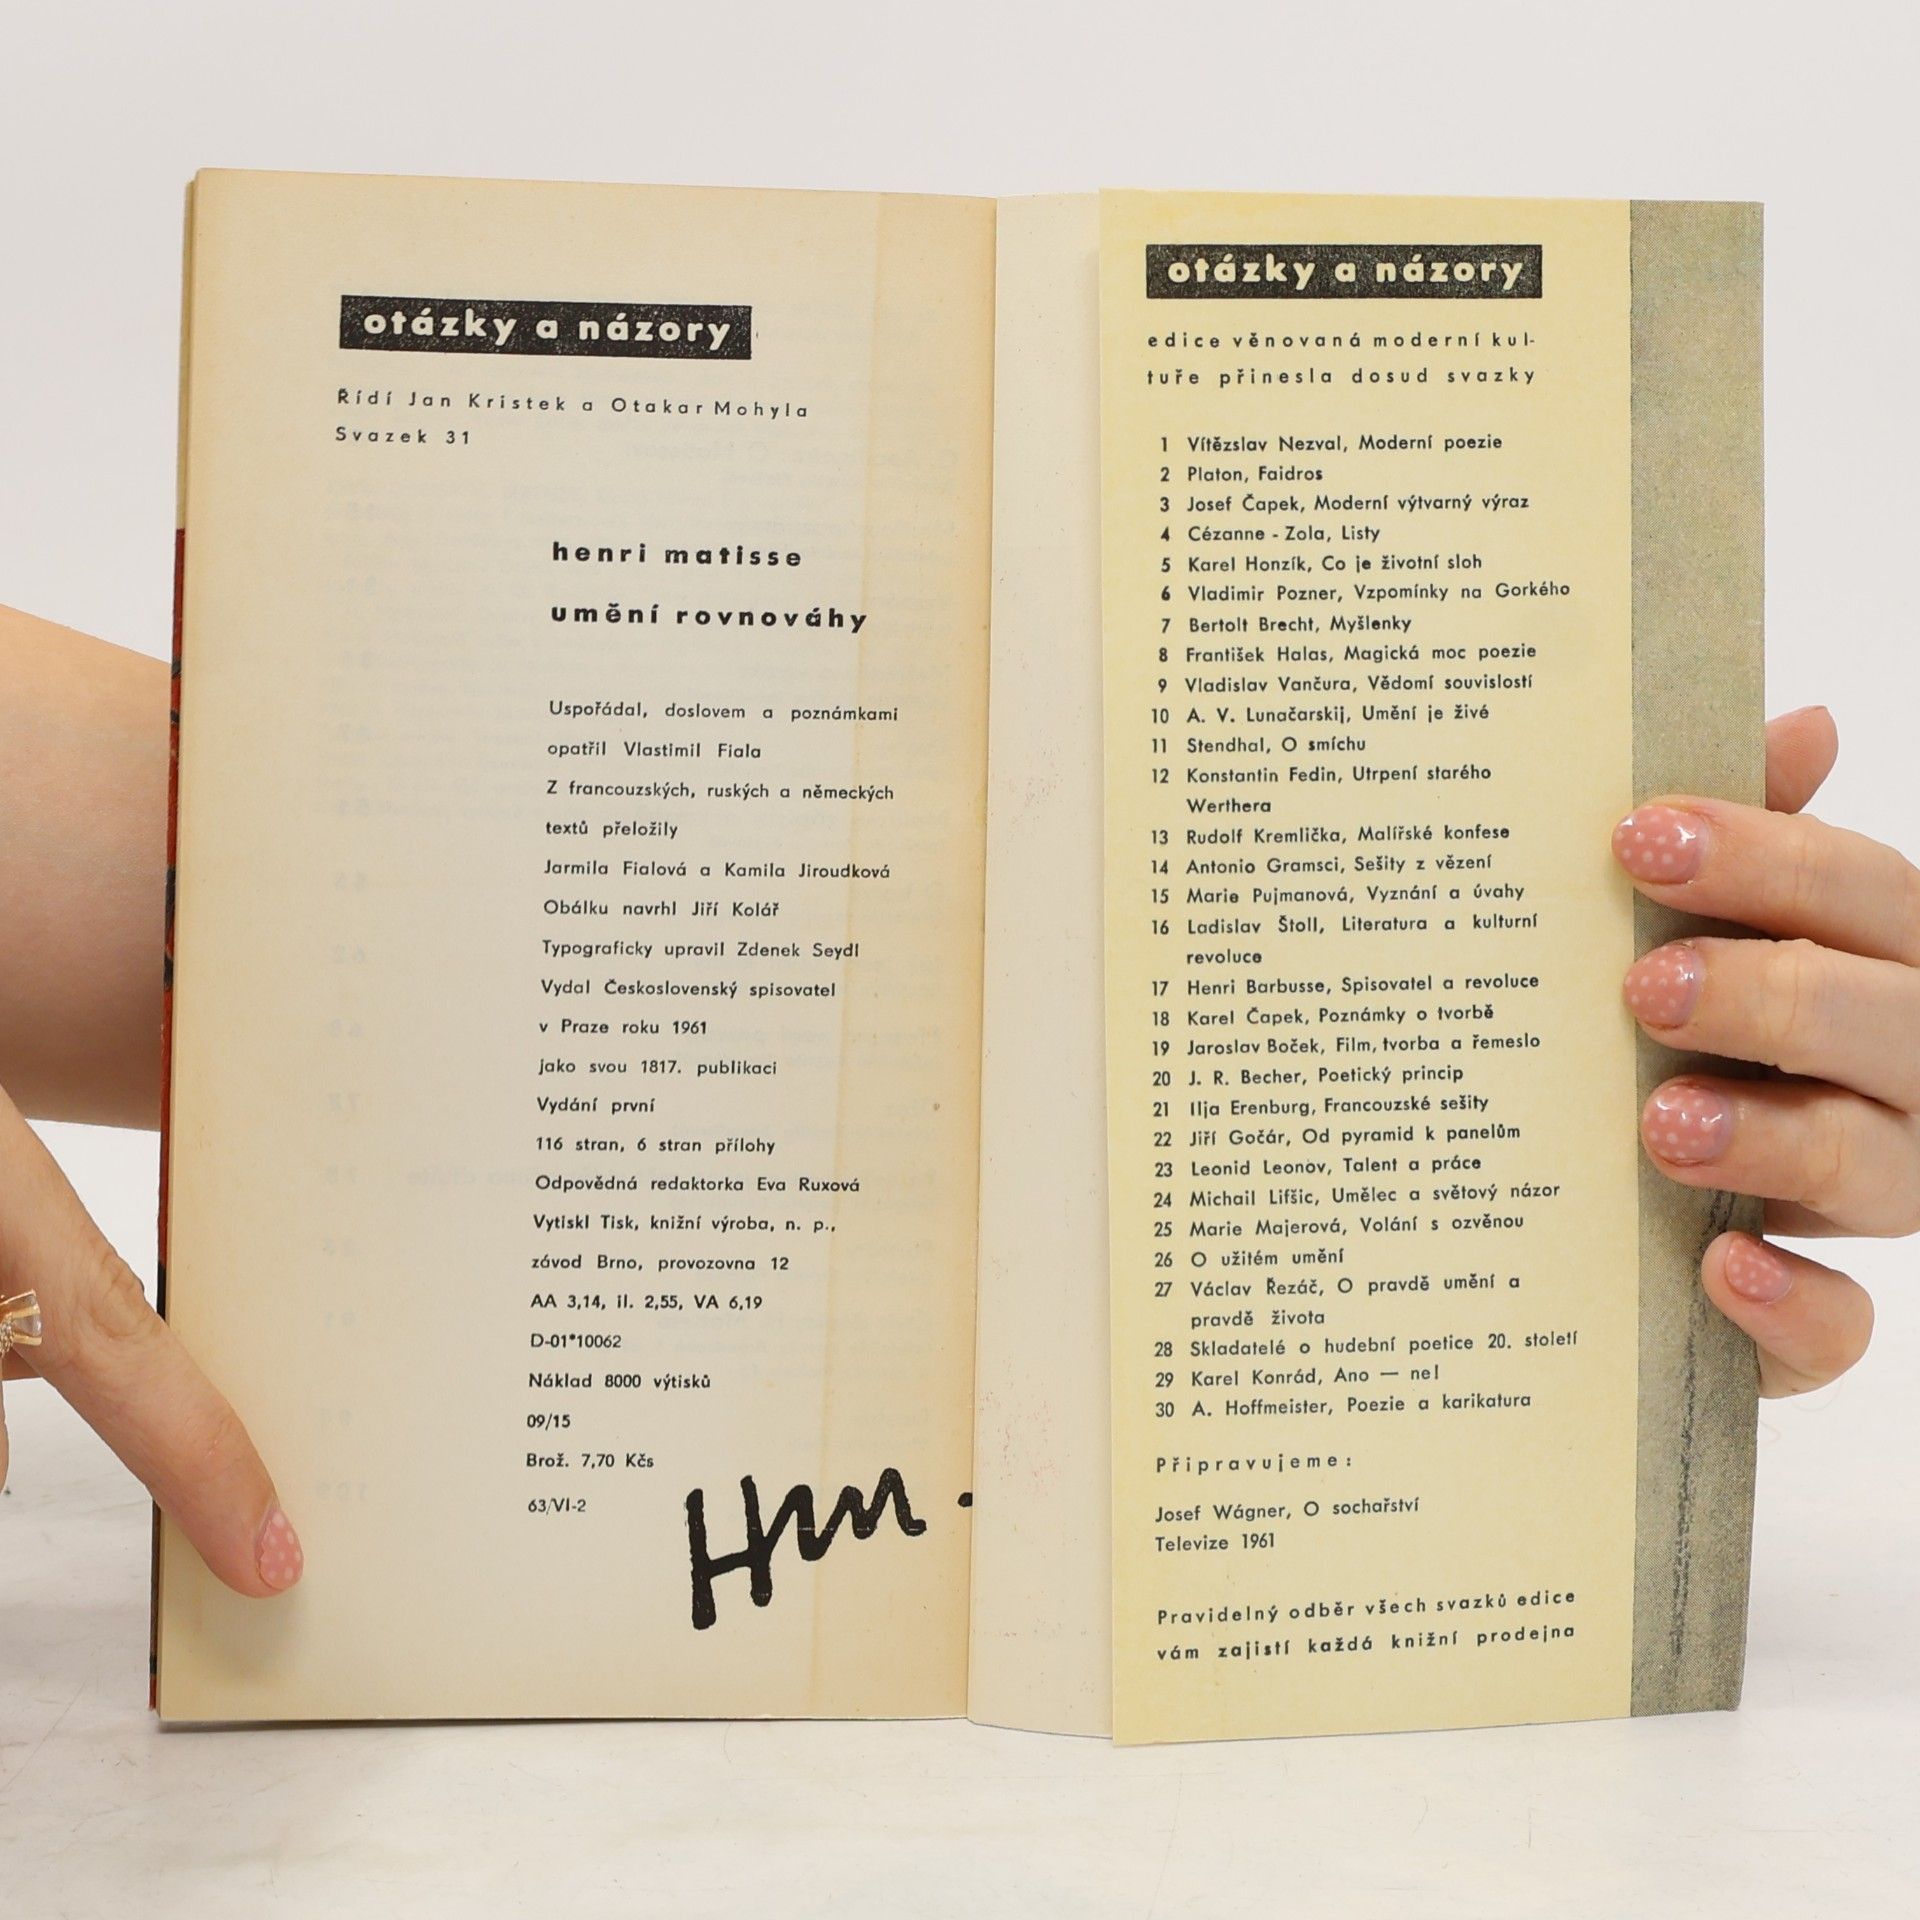 otázky a názory
Řídí Jan Kristek a Otakar Mohyla
Svazek 31
henri matisse
umění rovnováhy
Uspořádal, doslovem a poznámkami
opatřil Vlastimil Fiala
Z francouzských, ruských a německých
textů přeložily
Jarmila Fialová a Kamila Jiroudková
Obálku navrhl Jiří Kolář
Typograficky upravil Zdenek Seydl
Vydal Československý spisovatel
v Praze roku 1961
jako svou 1817. publikaci
Vydání první
116 stran, 6 stran přílohy
Odpovědná redaktorka Eva Ruxová
Vytiskl Tisk, knižní výroba, n. p.,
závod Brno, provozovna 12
AA 3,14, il. 2,55, VA 6,19
D-01*10062
Náklad 8000 výtisků
09/15
Brož. 7,70 Kčs
63/VI-2
otázky a názory
edice věnovaná moderní kul-
tuře přinesla dosud svazky
1 Vítězslav Nezval, Moderní poezie
2 Platon, Faidros
3 Josef Čapek, Moderní výtvarný výraz
4 Cézanne - Zola, Listy
5 Karel Honzík, Co je životní sloh
6 Vladimir Pozner, Vzpomínky na Gorkého
7 Bertolt Brecht, Myšlenky
8 František Halas, Magická moc poezie
9 Vladislav Vančura, Vědomí souvislostí
10 A. V. Lunačarskij, Umění je živé
11 Stendhal, O smíchu
12 Konstantin Fedin, Utrpení starého
Werthera
13 Rudolf Kremlička, Malířské konfese
14 Antonio Gramsci, Sešity z vězení
15 Marie Pujmanová, Vyznání a úvahy
16 Ladislav Štoll, Literatura a kulturní
revoluce
17 Henri Barbusse, Spisovatel a revoluce
18 Karel Čapek, Poznámky o tvorbě
19 Jaroslav Boček, Film, tvorba a řemeslo
20 J. R. Becher, Poetický princip
21 Ilja Erenburg, Francouzské sešity
22 Jiří Gočár, Od pyramid k panelům
23 Leonid Leonov, Talent a práce
24 Michail Lifšic, Umělec a světový názor
25 Marie Majerová, Volání s ozvěnou
26 O užitém umění
27 Václav Řezáč, O pravdě umění a
pravdě života
28 Skladatelé o hudební poetice 20. století
29 Karel Konrád, Ano — ne!
30 A. Hoffmeister, Poezie a karikatura
Připravujeme:
Josef Wágner, O sochařství
Televize 1961
Pravidelný odběr všech svazků edice
vám zajistí každá knižní prodejna